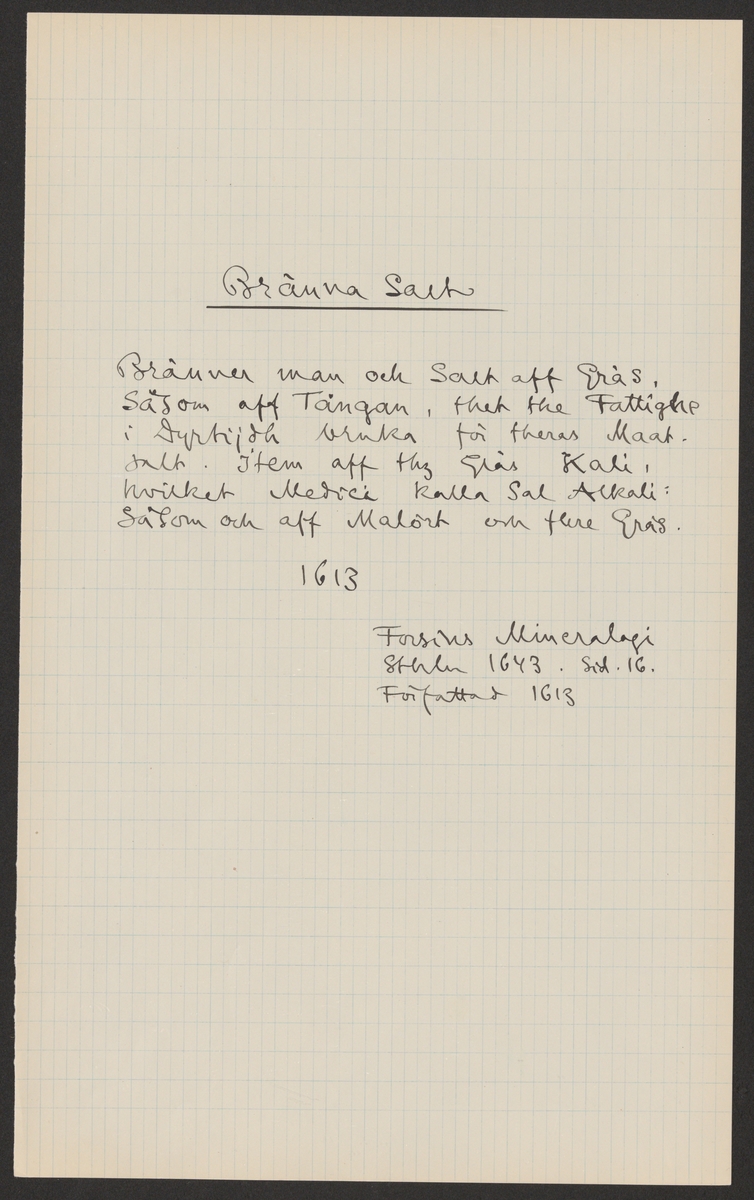 Bränna Salt
Bränner man och Salt aff Gräs,
Såsom aff Tången, thet the Fattighe
i Dyrtijdh bruka för theras Maat-
salt. Item aff thz Gräs Kali,
hvilket Medici kalla Sal Alkali:
Såsom och aff Malört och flere Gräs.
1613
Forsius Mineralogi
Sthlm 1643. Sid. 16.
Författad 1613